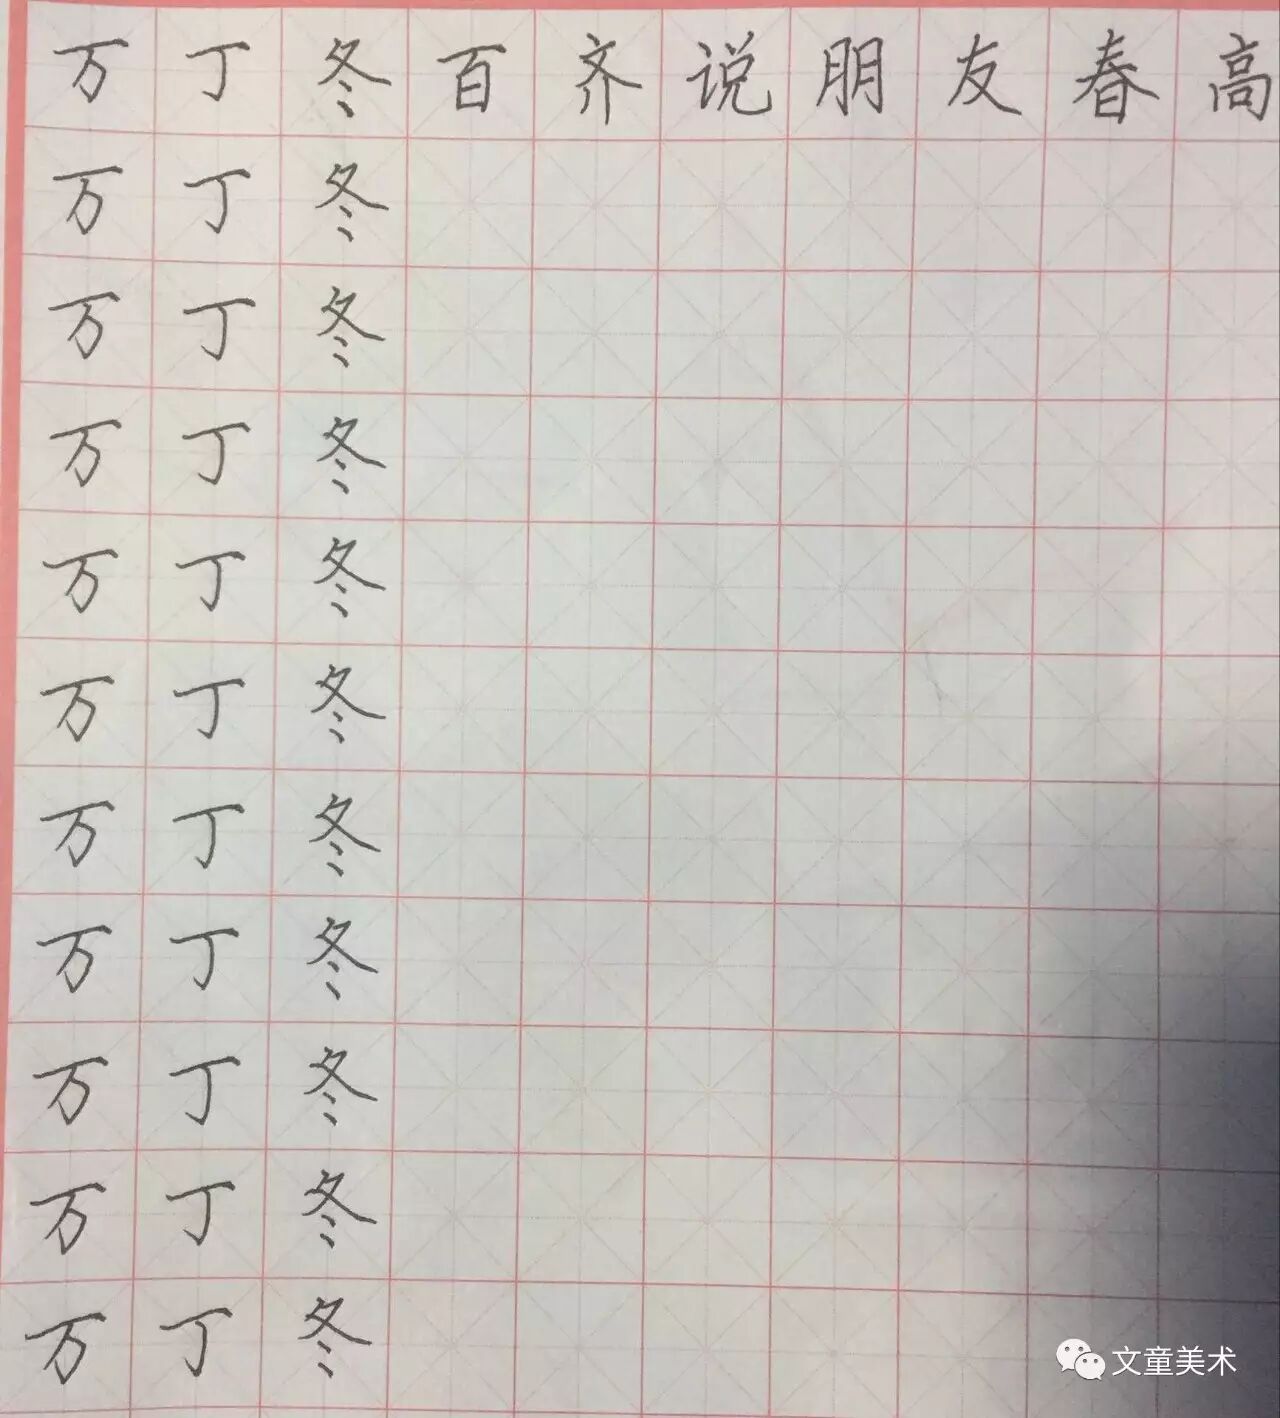 万丁冬百齐说朋友春高
万丁冬
万丁冬
万丁冬
万丁冬
万丁冬
万丁冬
万丁冬
万丁冬
万丁冬
万丁冬
文童美术